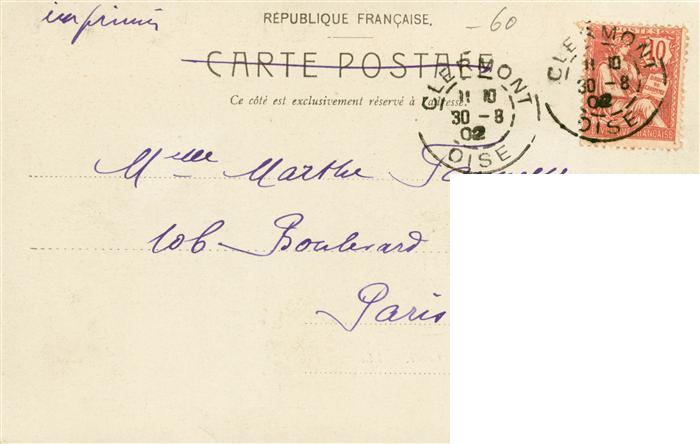 imprimés
RÉPUBLIQUE FRANÇAISE.
-60
CARTE POSTALE
Ce côté est exclusivement réservé à l'adresse.
CLERMONT
11 10
30 - 8
02
OISE
CLERMONT
11 10
30 - 8
02
OISE
POSTES
10
Melle Marthe
106 Boulevard
Paris